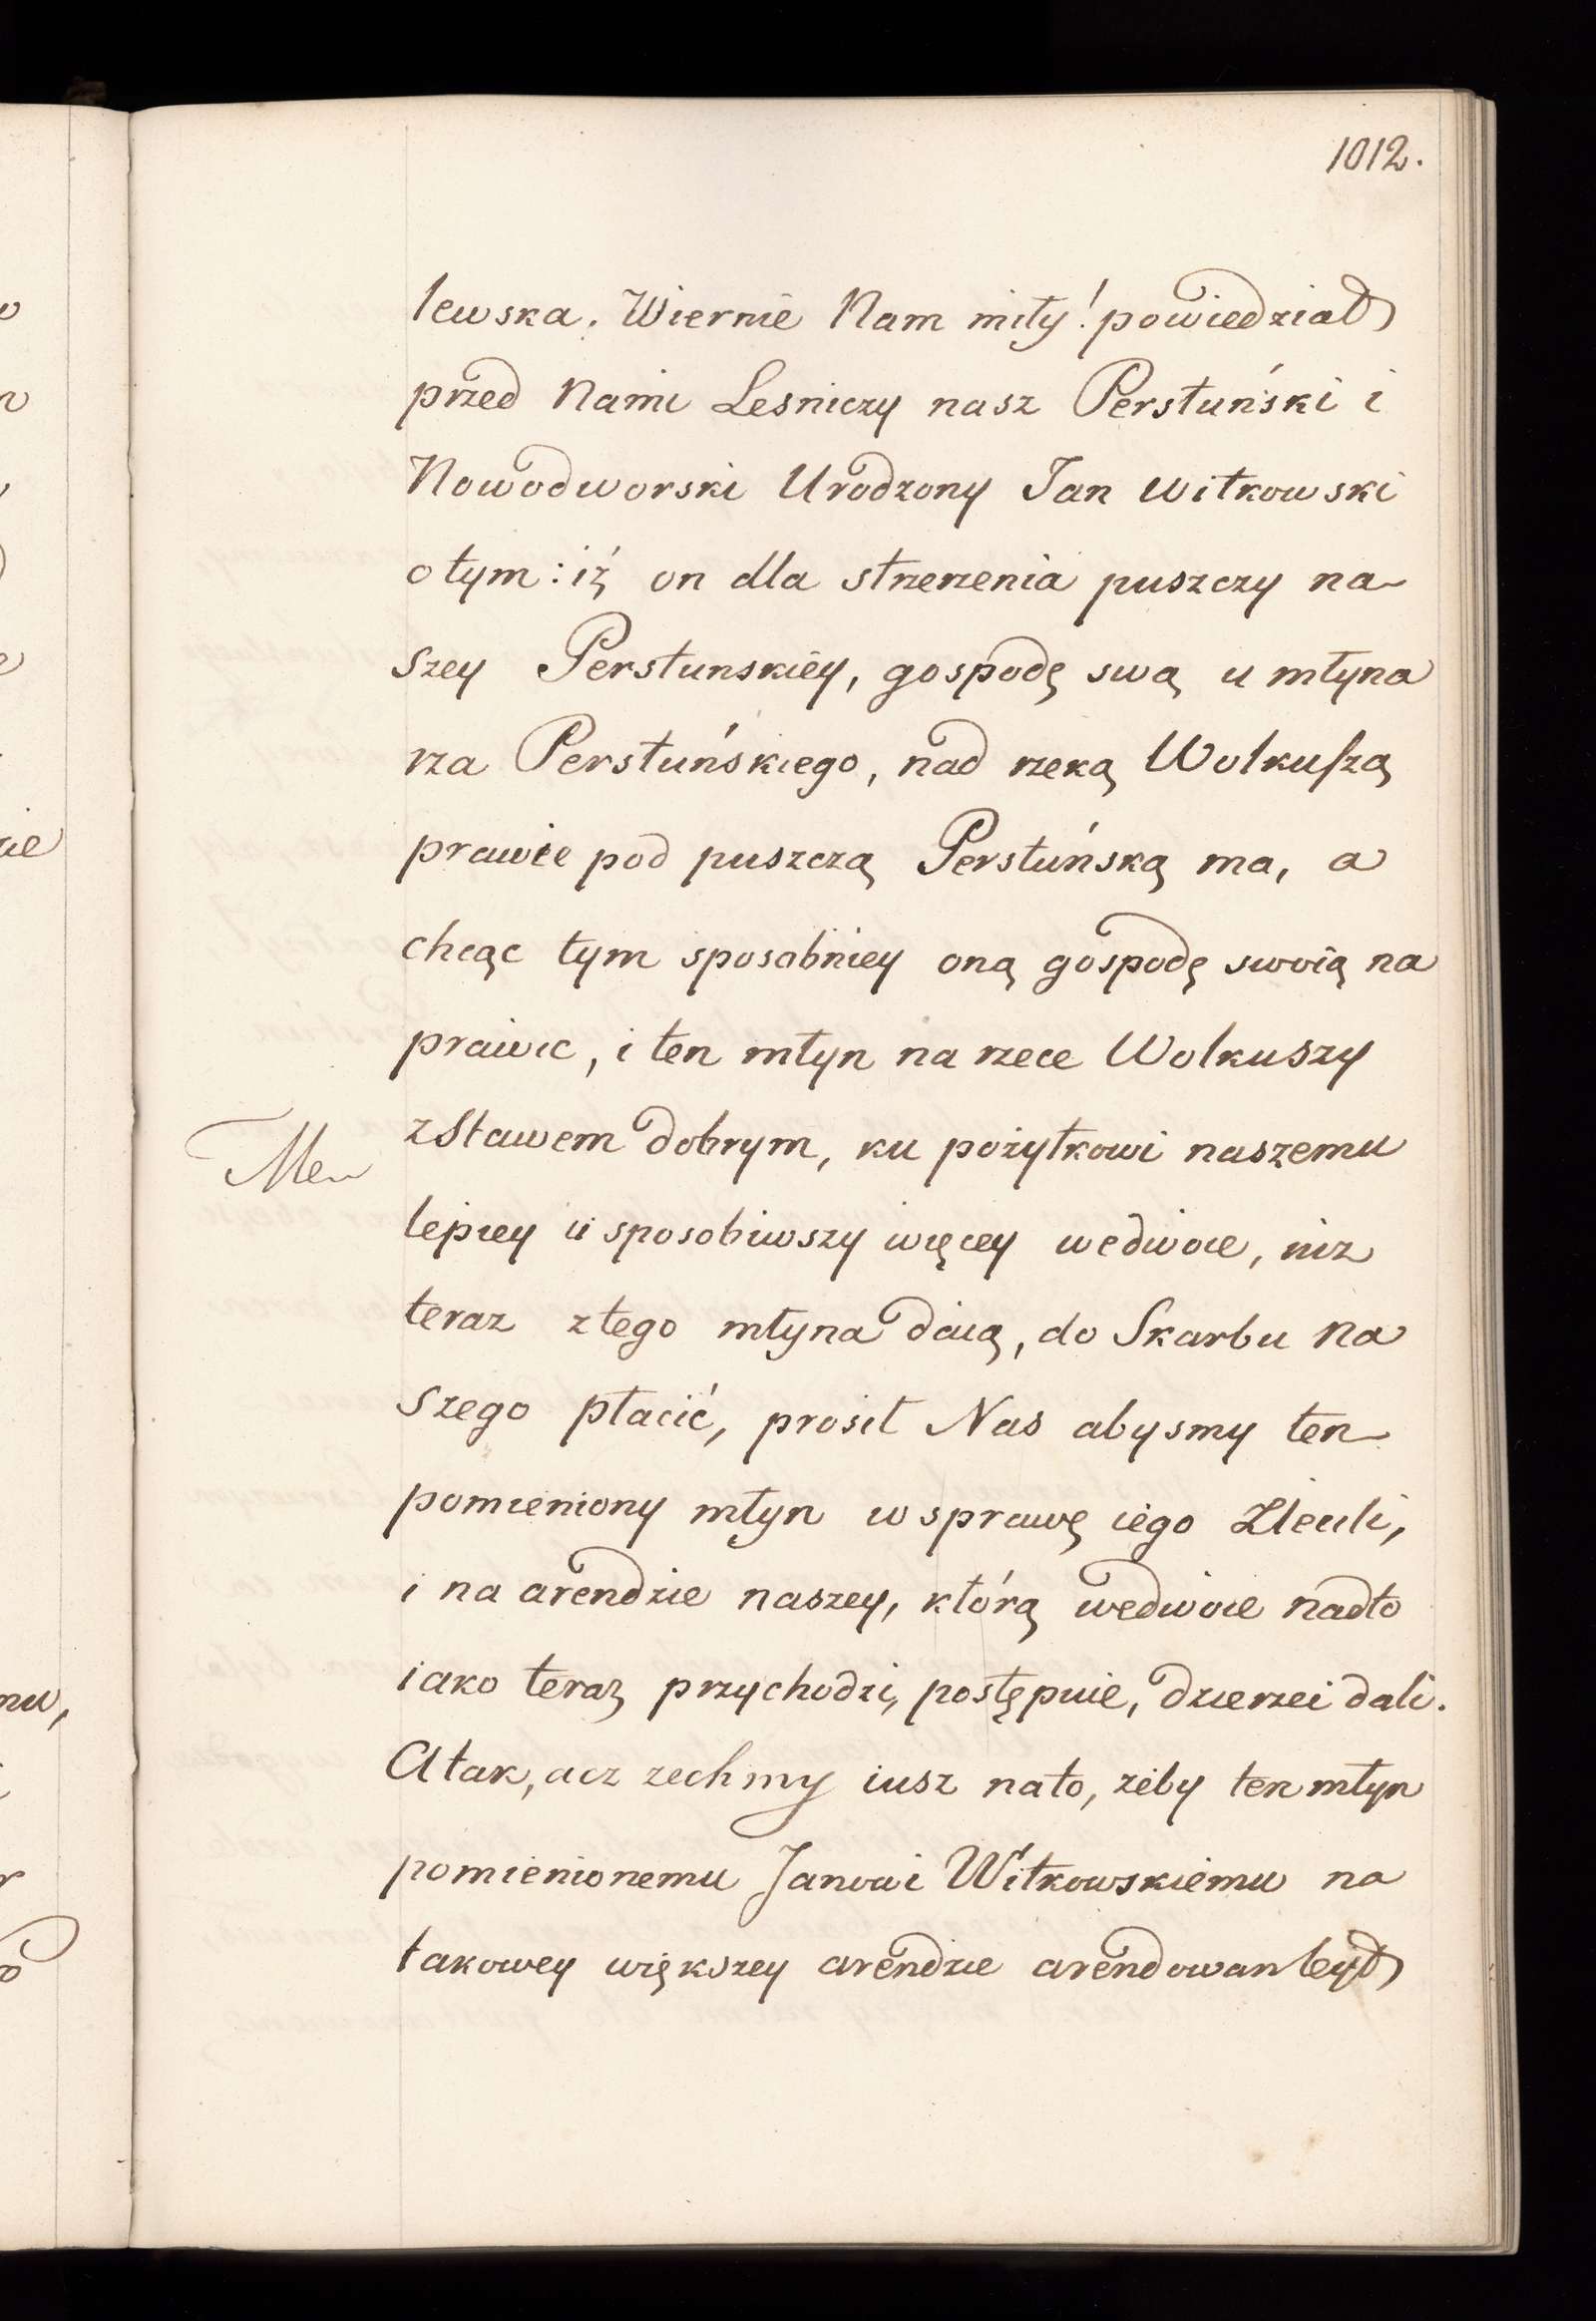 1012.
lewska. Wiernie Nam miły! powiedział
przed Nami Lesniczy nasz Perstuński i
Nowodworski Urodzony Jan Witkowski
o tym: iż on dla strzerzenia puszczy na-
szey Perstunskiey, gospodę swą u młyna
rza Perstuńskiego, nad rzeką Wolkuszą
prawie pod puszczą Perstuńską ma, a
chcąc tym sposabniey oną gospodę swoią na
prawic, i ten młyn na rzece Wolkuszy
z Stawem dobrym, ku pożytkowi naszemu
lepiey usposobiwszy więcey wedwoie, niz
teraz z tego młyna daią, do Skarbu na
szego płacić, prosił Nas abysmy ten
pomieniony młyn w sprawę iego zlecili,
i na arendzie naszey, którą wedwoie nadto
iako teraz przychodzi, postępuie, dzierzei dali.
A tak, acz zechmy iusz nato, zeby ten młyn
pomienionemu Janowi Witkowskiemu na
takowey większey arendzie arendowan był